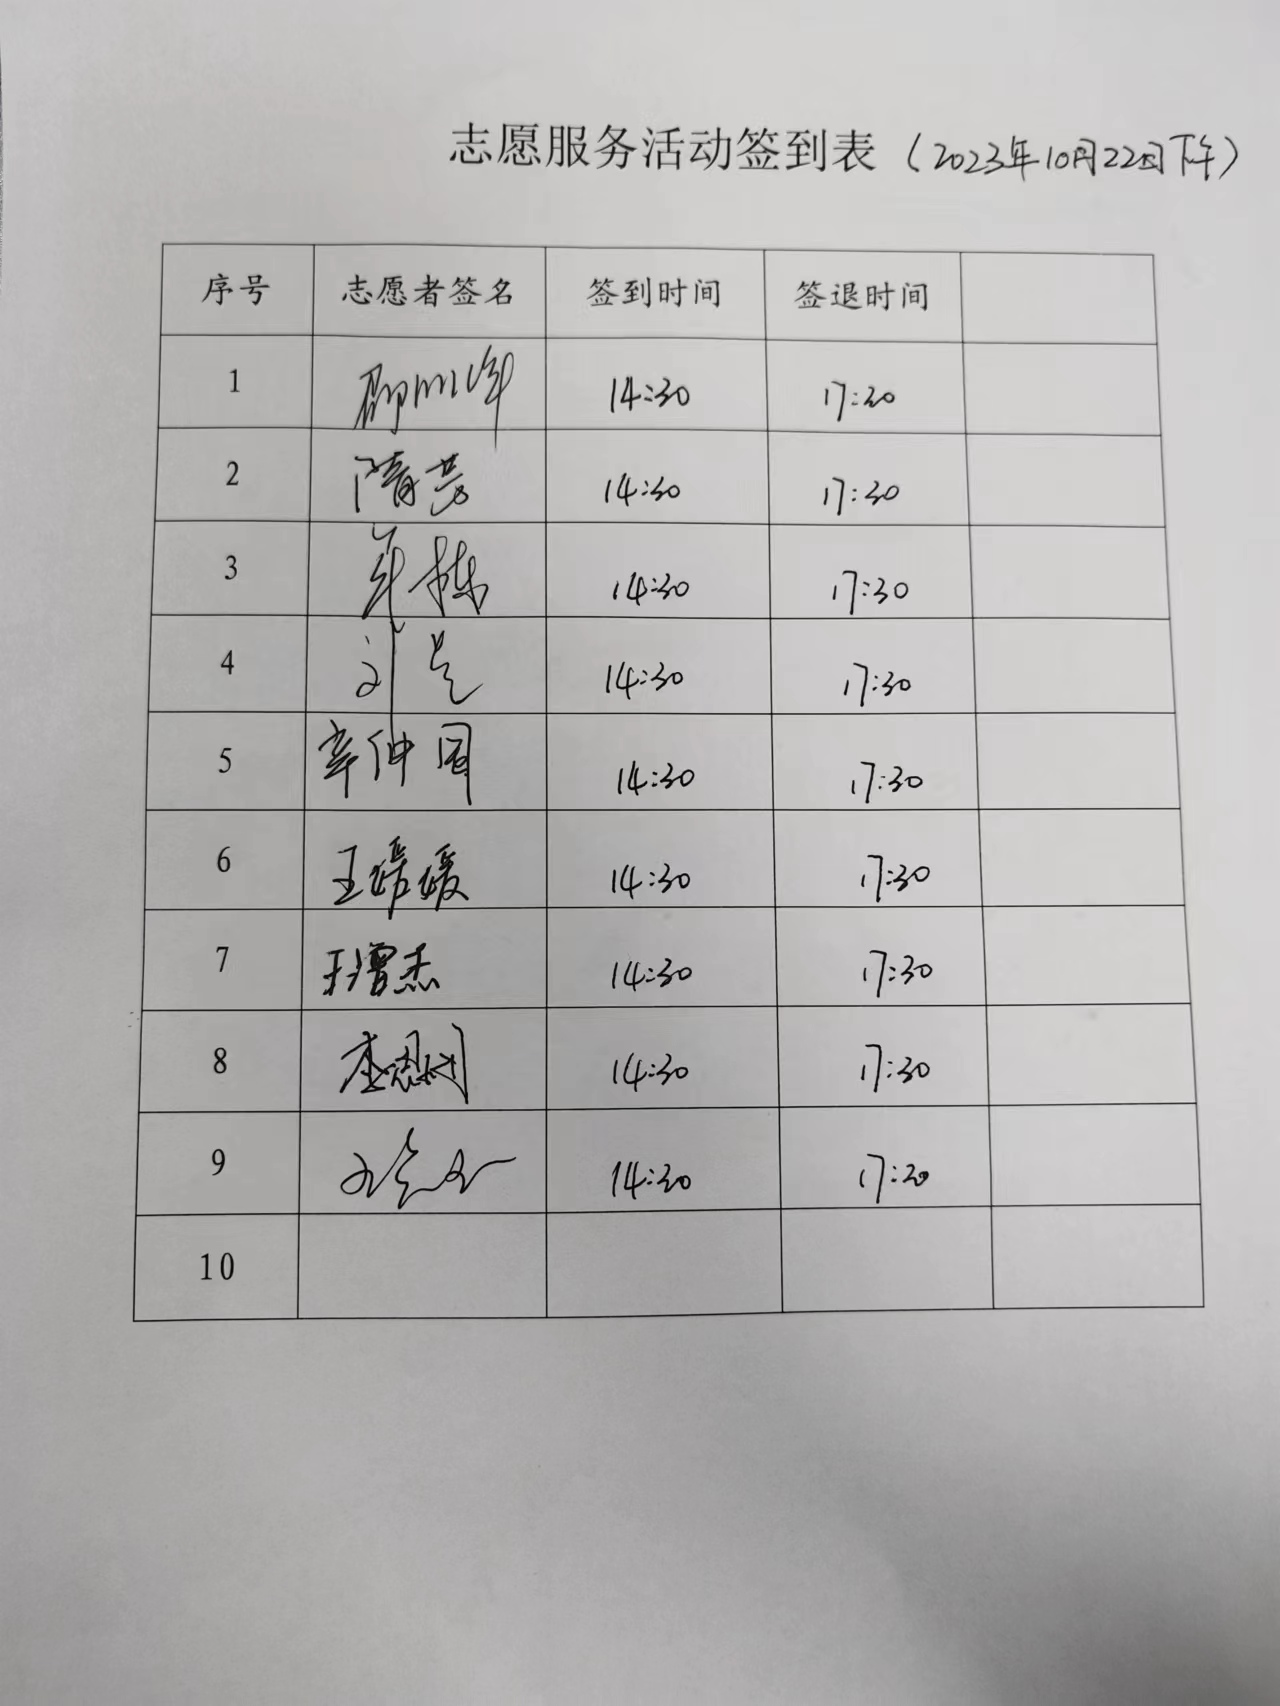 志愿服务活动签到表（2023年10月22日下午）
序号 志愿者签名 签到时间 签退时间
1 14:30 17:30
2 隋芸 14:30 17:30
3 牟栋 14:30 17:30
4 刘 14:30 17:30
5 辛仲 14:30 17:30
6 王媛媛 14:30 17:30
7 王增杰 14:30 17:30
8 李 14:30 17:30
9 14:30 17:30
10